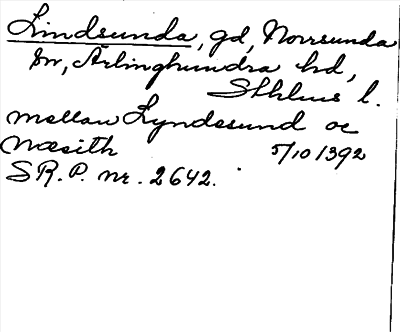 Lindsunda, gd, Norrsunda
sn, Ärlinghundra hd,
Sthlms l.
mellan Lyndesund oc
Næsith 5/10 1392
S R. P. nr. 2642.